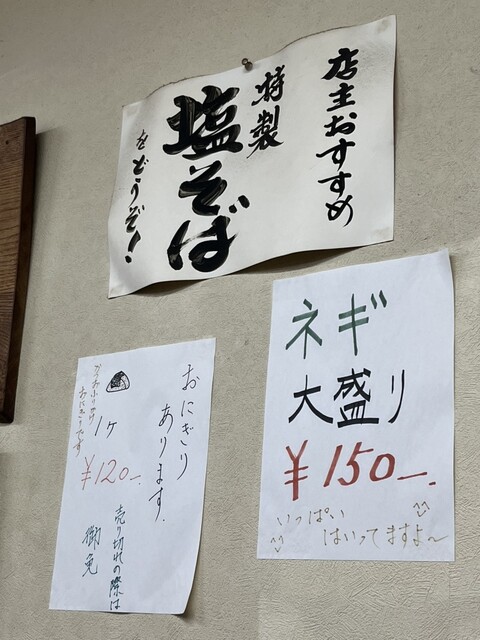 店主おすすめ
特製
塩そば
をどうぞ!
ネギ
大盛り
¥150—.
いっぱい
はいってますよ〜
おにぎり
あります.
1ヶ
¥120—.
かつおふりかけ
おにぎりです
売り切れの際は
御免